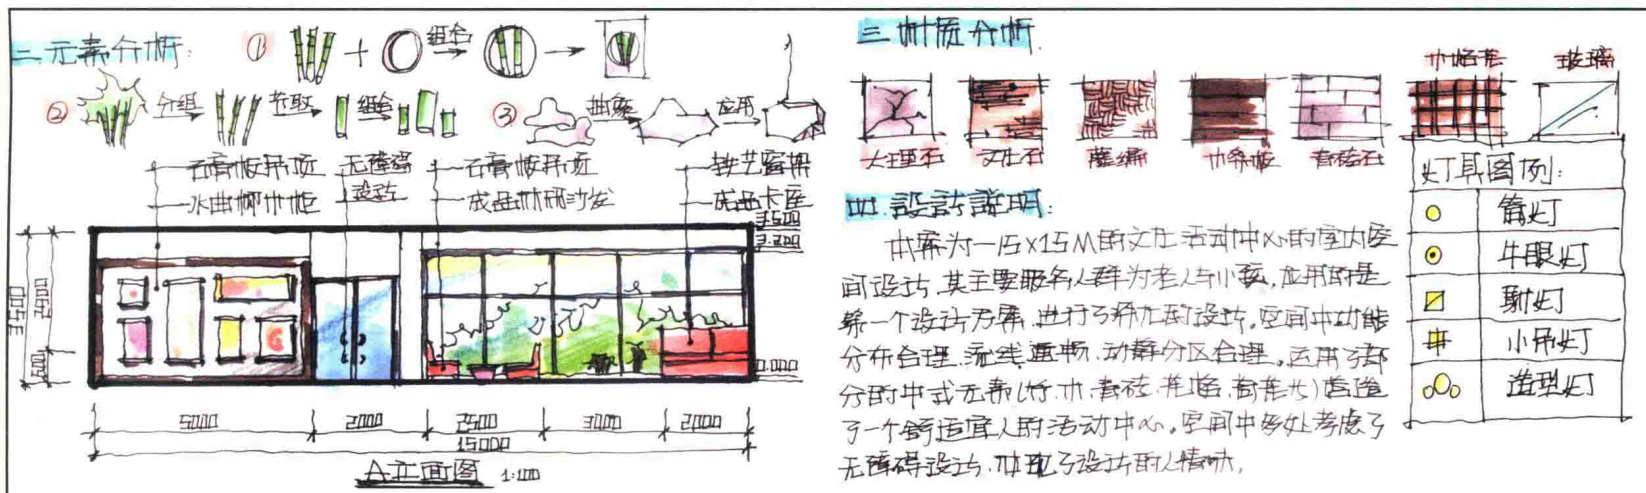 二.元素分析:
① + 组合
② 分组 提取 组合
③ 抽象 应用
石膏板吊顶
水曲柳木柜
无障碍
设计
石膏板吊顶
成品休闲沙发
铁艺窗架
成品卡座
3.500
3.200
0.000
3500
2500
5000
2000
2500
3000
2000
15000
A立面图 1:100
三.材质分析
大理石
文化石
藤编
木条板
青砖石
木格花
玻璃
四.設計說明:
本案为一15x15M的文化活动中心的室内空
间设计,其主要服务人群为老人与小孩,应用的是
第一个设计方案,进行了深化的设计,空间中功能
分布合理,流线流畅,动静分区合理,运用了部
分的中式元素(竹.木.青砖.花格.荷花灯)营造
了一个舒适宜人的活动中心,空间中多处考虑了
无障碍设计,体现了设计的人情味.
灯具图例:
筒灯
牛眼灯
射灯
小吊灯
造型灯